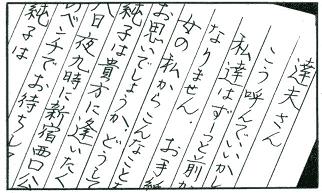 達夫さん
こう呼んでいいかし
私達はずーっと前か
なりません. お手紙
女の私からこんなことを
お思いでしょうか. どうして
純子は貴方に逢いたく
八日夜九時に新宿西口公
のベンチでお待ちし
純子は